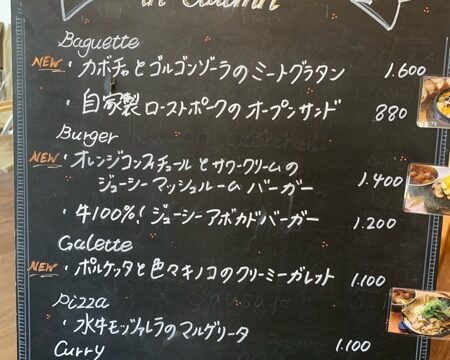 in Autumn
Baguette
NEW ・カボチャとゴルゴンゾーラのミートグラタン 1.600
・自家製ローストポークのオープンサンド 880
Burger
NEW ・オレンジコンフィチュールとサワークリームの
ジューシーマッシュルームバーガー 1.400
・牛100%!ジューシーアボカドバーガー 1.200
Galette
NEW ・ポルケッタと色マキノコのクリーミーガレット 1.100
pizza
・水牛モッツァレラのマルゲリータ 1.100
Curry